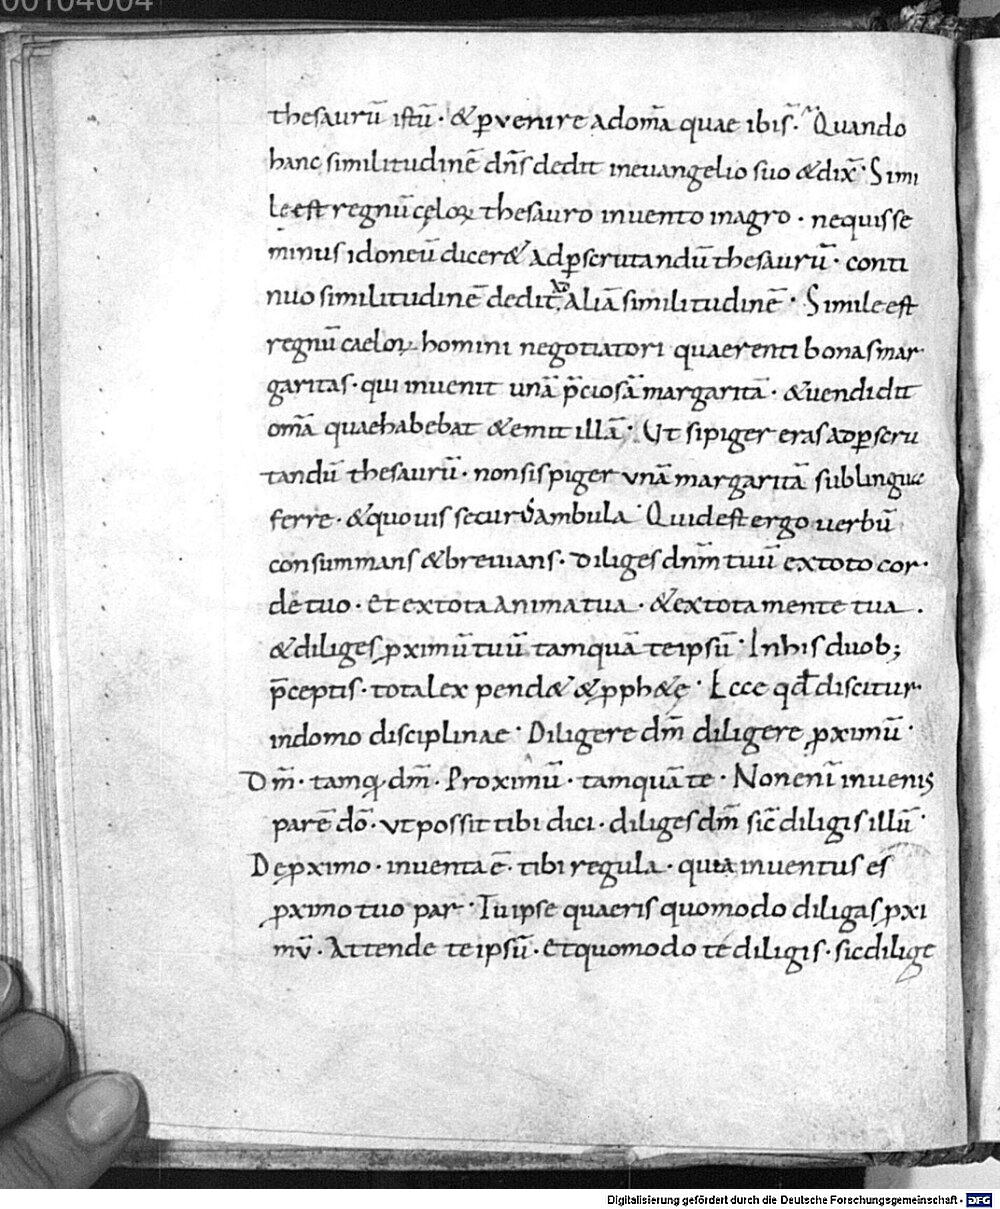 00104004
thesaurū istū · &ꝑvenire adom̄a quae ibi s̄ · Quando
hanc similitudinē dn̄s dedit ineuangelio suo &dix̄ · Simi
leest regnū cęloꝝ thesauro inuento inagro · nequisse
minus idoneū dicer& adꝑscrutandū thesaurū · conti
nuo similitudinē dedit, ad aliā similitudinē · Simileest
regnū caeloꝝ homini negotiatori quaerenti bonasmar
garitas · qui inuenit unā p̄ciosā margaritā · &uendidit
om̄a quaehabebat &emit illā · Ut sipiger eras adꝑscru
tandū thesaurū · nonsis piger unā margaritā sublingua
ferre · &quouis securus ambula · Quidest ergo uerbū
consummans &breuians · diliges dn̄m tuū extoto cor
de tuo · et extota anima tua · &extota mente tua ·
&diliges ꝓximū tuū tamquā teipsū · Inhis duob;
p̄ceptis · tota lex pend& &ꝓph&ę · Ecce qd̄ discitur
indomo disciplinae · Diligere dm̄ diligere ꝓximū ·
Dm̄ · tamq̄ dm̄ · Proximū · tamquā te · Nonenī inuenis
parē dō · ut possit tibi dici · diliges dm̄ sic̄ diligis illū ·
Deꝓximo · inuenta ē tibi regula · quia inuentus es
ꝓximo tuo par · Tu ipse quaeris quomodo diligas ꝓxi
mū · Attende teipsū · etquomodo te diligis · sicdilige
Digitalisierung gefördert durch die Deutsche Forschungsgemeinschaft - DFG